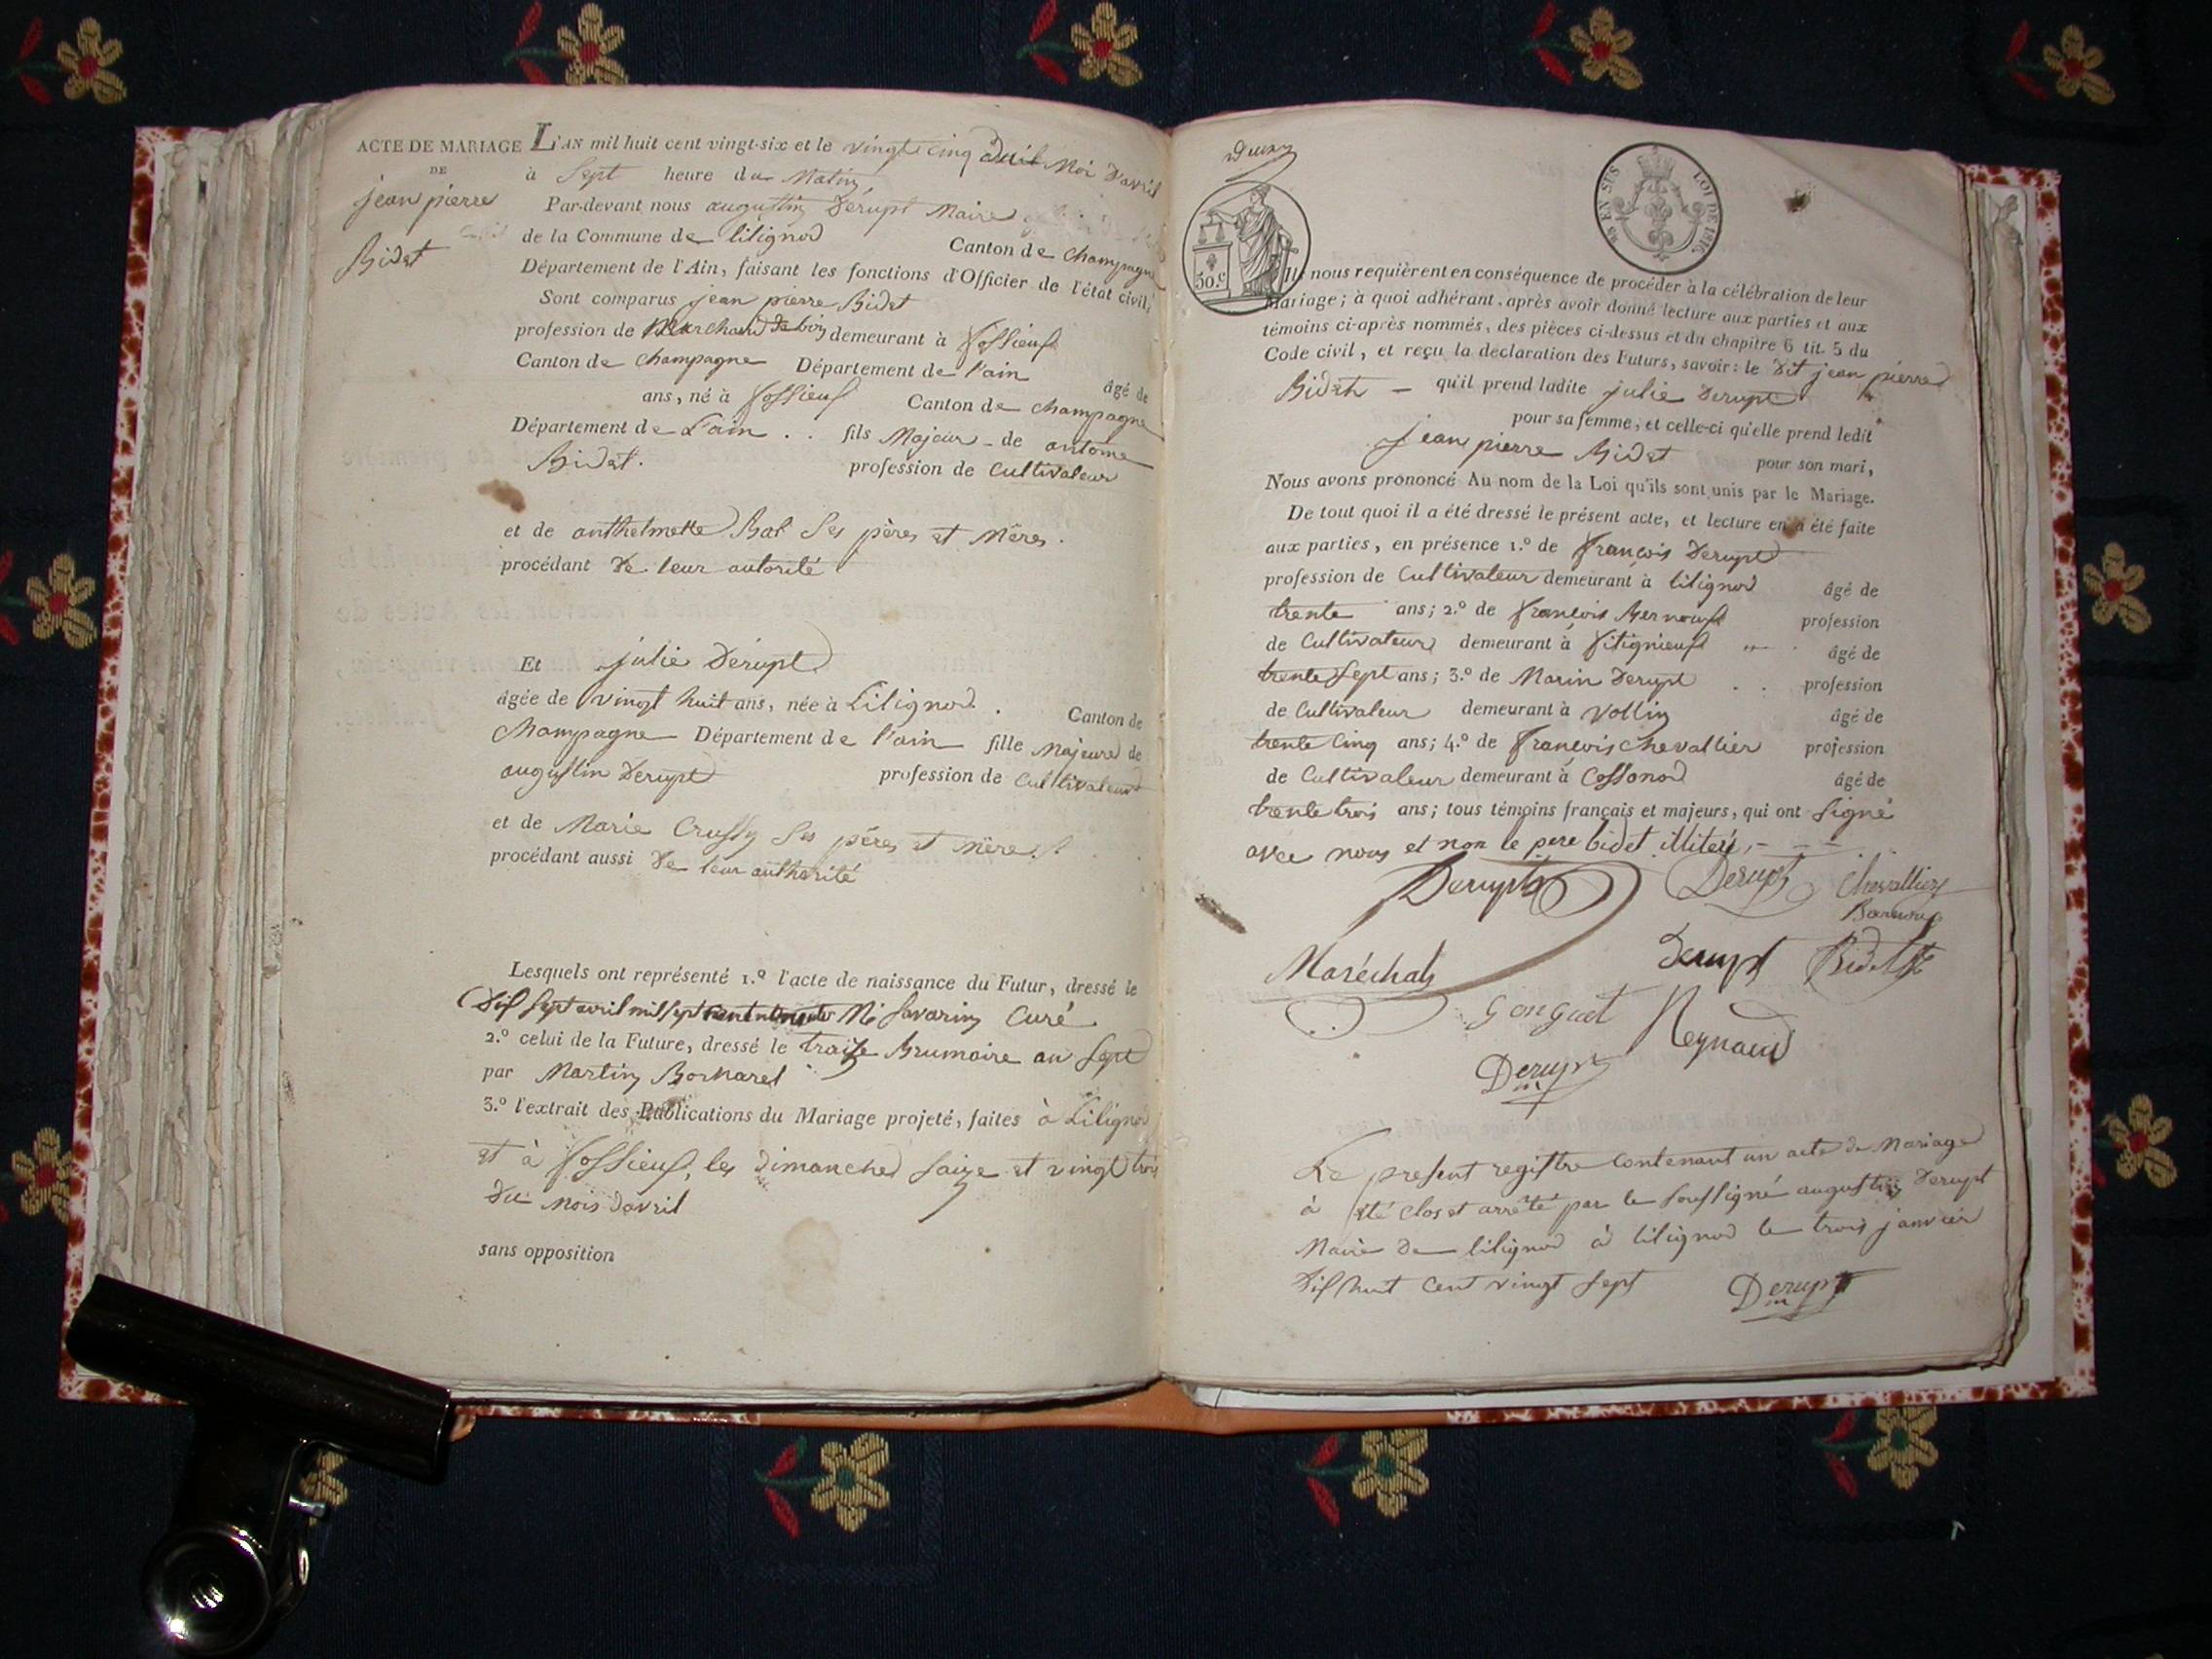 ACTE DE MARIAGE
DE
jean pierre
Bidet
L'AN mil huit cent vingt-six et le vingt cinq Moi D'avril
à Sept heure du Matin
Par-devant nous augustin Derupt Maire
de la Commune de lilignod Canton de Champagne
Département de l'Ain, faisant les fonctions d'Officier de l'état civil,
Sont comparus jean pierre Bidet
profession de Marchand de vin demeurant à fossieux
Canton de Champagne Département de l'ain âgé de
ans, né à fossieux Canton de Champagne
Département de L'ain . . fils Majeur - de antoine
Bidet. profession de Cultivateur
et de anthelmette Bal Ses pères et Mères.
procédant De leur autorité
Et julie Derupt
âgée de vingt huit ans, née à Lilignod. Canton de
Champagne Département de l'ain fille Majeure de
augustin Derupt profession de Cultivateur
et de Marie Crussy Ses pères et mères
procédant aussi De leur authorité
Lesquels ont représenté 1.º l'acte de naissance du Futur, dressé le
Dix Sept avril mil sept Savarin Curé
2.º celui de la Future, dressé le traize Brumaire an Sept
par Martin Bornarel
3.º l'extrait des Publications du Mariage projeté, faites à Lilignod
et à fossieux, les dimanches saize et vingt trois
Du mois davril
sans opposition
50.c
EN SUS LOI DE 1816.
Ils nous requièrent en conséquence de procéder à la célébration de leur
Mariage; à quoi adhérant, après avoir donné lecture aux parties et aux
témoins ci-après nommés, des pièces ci-dessus et du chapitre 6 tit. 5 du
Code civil, et reçu la déclaration des Futurs, savoir: le Dit jean pierre
Bidet — qu'il prend ladite julie Derupt
pour sa femme, et celle-ci qu'elle prend ledit
jean pierre Bidet pour son mari,
Nous avons prononcé Au nom de la Loi qu'ils sont unis par le Mariage.
De tout quoi il a été dressé le présent acte, et lecture en a été faite
aux parties, en présence 1.º de françois Derupt
profession de Cultivateur demeurant à lilignod âgé de
trente ans; 2.º de françois Bernoux profession
de Cultivateur demeurant à fitignieux âgé de
trente Sept ans; 3.º de Marin Derupt . . profession
de Cultivateur demeurant à Vollin âgé de
trente Cinq ans; 4.º de françois chevallier profession
de Cultivateur demeurant à Cossonod âgé de
trente trois ans; tous témoins français et majeurs, qui ont Signé
avec nous et non le pere bidet illiteré, - - -
Derupt Derupt Chevallier
Maréchal Derupt Bidet
Gonguet Reynaud
Derupt
m
Le present registre Contenant un acte de Mariage
à été clos et arrêté par le soussigné augustin Derupt
Maire de lilignod à lilignod le trois janvier
Dix huit Cent vingt Sept Derupt
m